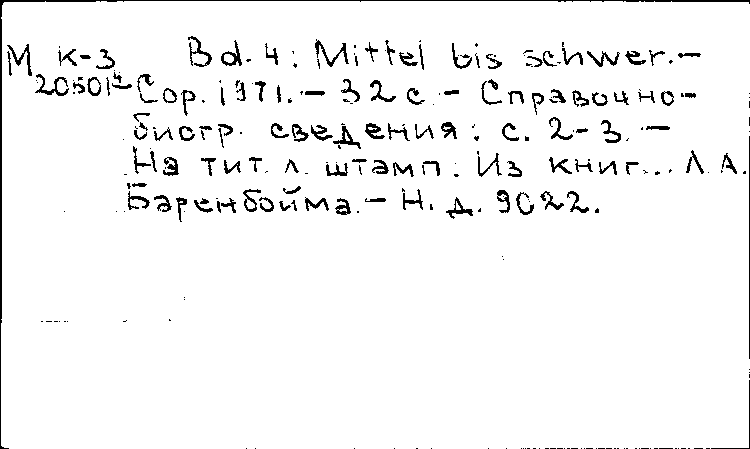 М К-3 Bd. 4: Mittel bis schwer.—
20501⁴ Cop. 1971.— 32 с.— Справочно-
биогр. сведения: с. 2-3.—
На тит. л. штамп: Из книг... Л.А.
Баренбойма.— Н. д. 9022.